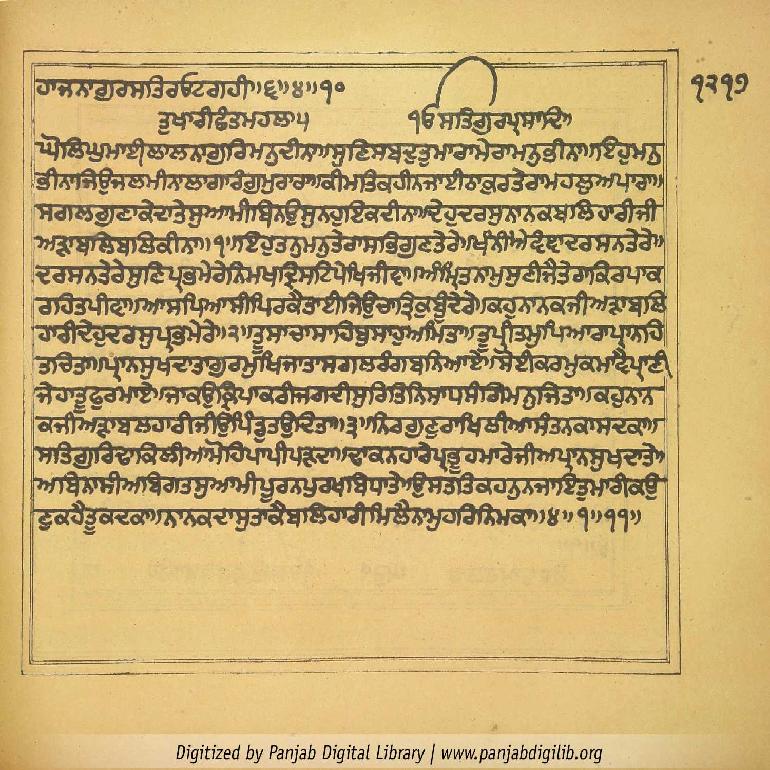 ੧੨੧੭
ਹਾਜਨਾਗੁਰਸਤਿਰਓਟਗਹੀ॥੬॥੪॥੧੦
ਤੁਖਾਰੀਛੰਤਮਹਲਾ੫ ੧ਓ ਸਤਿਗੁਰਪ੍ਰਸਾਦਿ॥
ਘੋਲਿਘੁਮਾਈਲਾਲਨਾਗੁਰਿਮਨੁਦੀਨਾ॥ਸੁਣਿਸਬਦੁਤੁਮਾਰਾਮੇਰਾਮਨੁਭੀਨਾ॥ਇਹੁਮਨੁ
ਭੀਨਾਜਿਉਜਲਮੀਨਾਲਾਗਾਰੰਗੁਮੁਰਾਰਾ॥ਕੀਮਤਿਕਹੀਨਜਾਈਠਾਕੁਰਤੇਰਾਮਹਲੁਅਪਾਰਾ॥
ਸਗਲਗੁਣਾਕੇਦਾਤੇਸੁਆਮੀਬਿਨਉਸੁਨਹੁਇਕਦੀਨਾ॥ਦੇਹੁਦਰਸੁਨਾਨਕਬਲਿਹਾਰੀਜੀ
ਅੜਾਬਲਿਬਲਿਕੀਨਾ॥੧॥ਇਹੁਤਨੁਮਨੁਤੇਰਾਸਭਿਗੁਣਤੇਰੇ॥ਖੰਨੀਐਵੰਞਾਦਰਸਨਤੇਰੇ॥
ਦਰਸਨਤੇਰੇਸੁਣਿਪ੍ਰਭਮੇਰੇਨਿਮਖਦ੍ਰਿਸਟਿਪੇਖਿਜੀਵਾ॥ਅੰਮ੍ਰਿਤਨਾਮੁਸੁਣੀਜੈਤੇਰਾਕਿਰਪਾਕ
ਰਹਿਤਪੀਵਾ॥ਆਸਪਿਆਸੀਪਿਰਕੈਤਾਈਜਿਉਚਾਤ੍ਰਿਕੁਬੂੰਦੇਰੇ॥ਕਹੁਨਾਨਕਜੀਅੜਾਬਲਿ
ਹਾਰੀਦੇਹੁਦਰਸੁਪ੍ਰਭਮੇਰੇ॥੨॥ਤੂਸਾਚਾਸਾਹਿਬੁਸਾਹੁਅਮਿਤਾ॥ਤੂਪ੍ਰੀਤਮੁਪਿਆਰਾਪ੍ਰਾਨਹਿ
ਤਚਿਤਾ॥ਪ੍ਰਾਨਸੁਖਦਾਤਾਗੁਰਮੁਖਿਜਾਤਾਸਗਲਰੰਗਬਨਿਆਏ॥ਸੋਈਕਰਮੁਕਮਾਵੈਪ੍ਰਾਣੀ
ਜੇਹਾਤੂਫੁਰਮਾਏ॥ਜਾਕਉਕ੍ਰਿਪਾਕਰੀਜਗਦੀਸੁਰਿਤਿਨਿਸਾਧਸੰਗਿਮਨੁਜਿਤਾ॥ਕਹੁਨਾਨ
ਕਜੀਅੜਾਬਲਹਾਰੀਜੀਉਪਿੰਡੁਤਉਦਿਤਾ॥੩॥ਨਿਰਗੁਣੁਰਾਖਿਲੀਆਸੰਤਨਕਾਸਦਕਾ॥
ਸਤਿਗੁਰਿਢਾਕਿਲੀਆਮੋਹਿਪਾਪੀਪੜਦਾ॥ਢਾਕਨਹਾਰੇਪ੍ਰਭੂਹਮਾਰੇਜੀਅਪ੍ਰਾਨਸੁਖਦਾਤੇ॥
ਅਬਿਨਾਸੀਅਬਿਗਤਸੁਆਮੀਪੂਰਨਪੁਰਖਬਿਧਾਤੇ॥ਉਸਤਤਿਕਹਨੁਨਜਾਇਤੁਮਾਰੀਕਉ
ਣੁਕਹੈਤੂਕਦਕਾ॥ਨਾਨਕਦਾਸੁਤਾਕੈਬਲਿਹਾਰੀਮਿਲੈਨਾਮੁਹਰਿਨਿਮਕਾ॥੪॥੧॥੧੧॥
Digitized by Panjab Digital Library | www.panjabdigilib.org